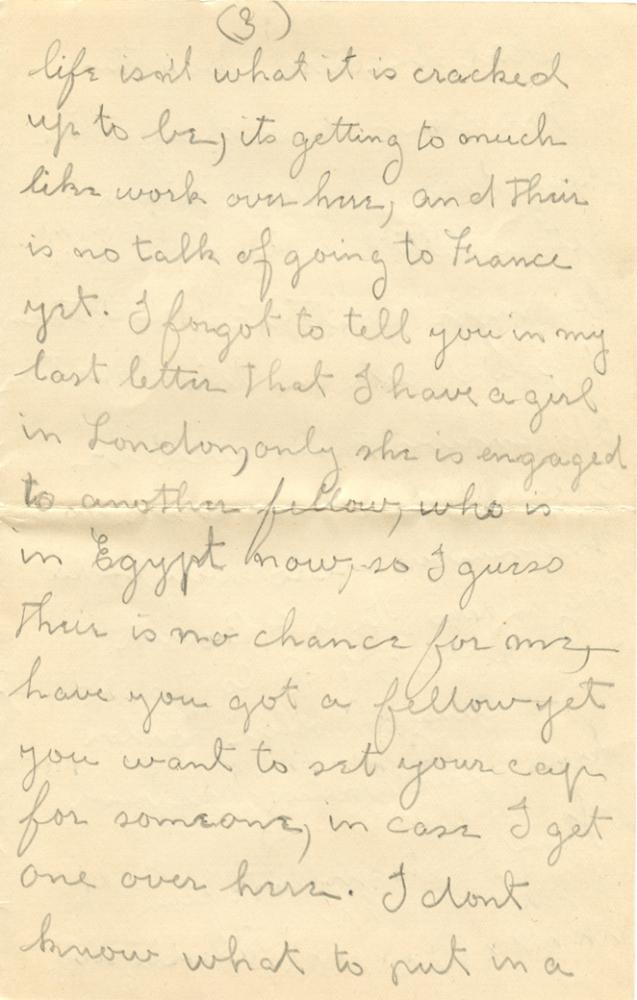 (3)
life isn't what it is cracked
up to be, its getting to much
like work over here, and their
is no talk of going to France
yet. I forgot to tell you in my
last letter that I have a girl
in London, only she is engaged
to another fellow, who is
in Egypt now, so I guess
their is no chance for me,
have you got a fellow yet
you want to set your cap
for someone, in case I get
one over here. I dont
know what to put in a